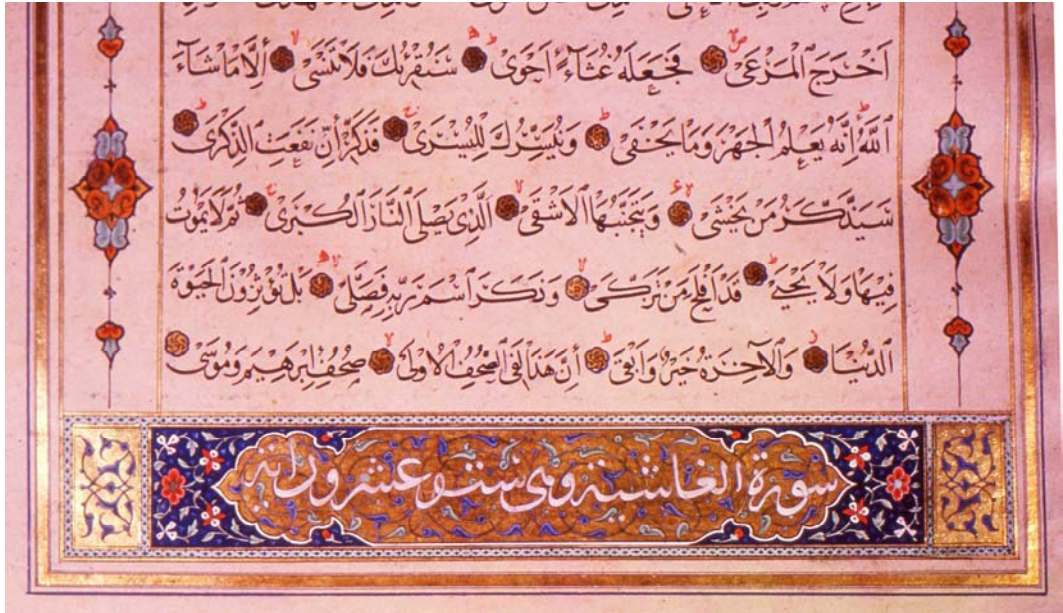 اَخْرَجَ الْمَرْعٰى فَجَعَلَهُ غُثَاۤءً اَحْوٰى سَنُقْرِئُكَ فَلَا تَنْسٰى اِلَّا مَا شَاۤءَ
اللّٰهُ اِنَّهُ يَعْلَمُ الْجَهْرَ وَمَا يَخْفٰى وَنُيَسِّرُكَ لِلْيُسْرٰى فَذَكِّرْ اِنْ نَفَعَتِ الذِّكْرٰى
سَيَذَّكَّرُ مَنْ يَخْشٰى وَيَتَجَنَّبُهَا الْاَشْقٰى الَّذِى يَصْلَى النَّارَ الْكُبْرٰى ثُمَّ لَا يَمُوتُ
فِيهَا وَلَا يَحْيٰى قَدْ اَفْلَحَ مَنْ تَزَكّٰى وَذَكَرَ اسْمَ رَبِّهِ فَصَلّٰى بَلْ تُؤْثِرُونَ الْحَيٰوةَ
الدُّنْيَا وَالْاٰخِرَةُ خَيْرٌ وَاَبْقٰى اِنَّ هٰذَا لَفِى الصُّحُفِ الْاُولٰى صُحُفِ اِبْرٰهِيمَ وَمُوسٰى
سورة الغاشية وهى ست وعشرون اية